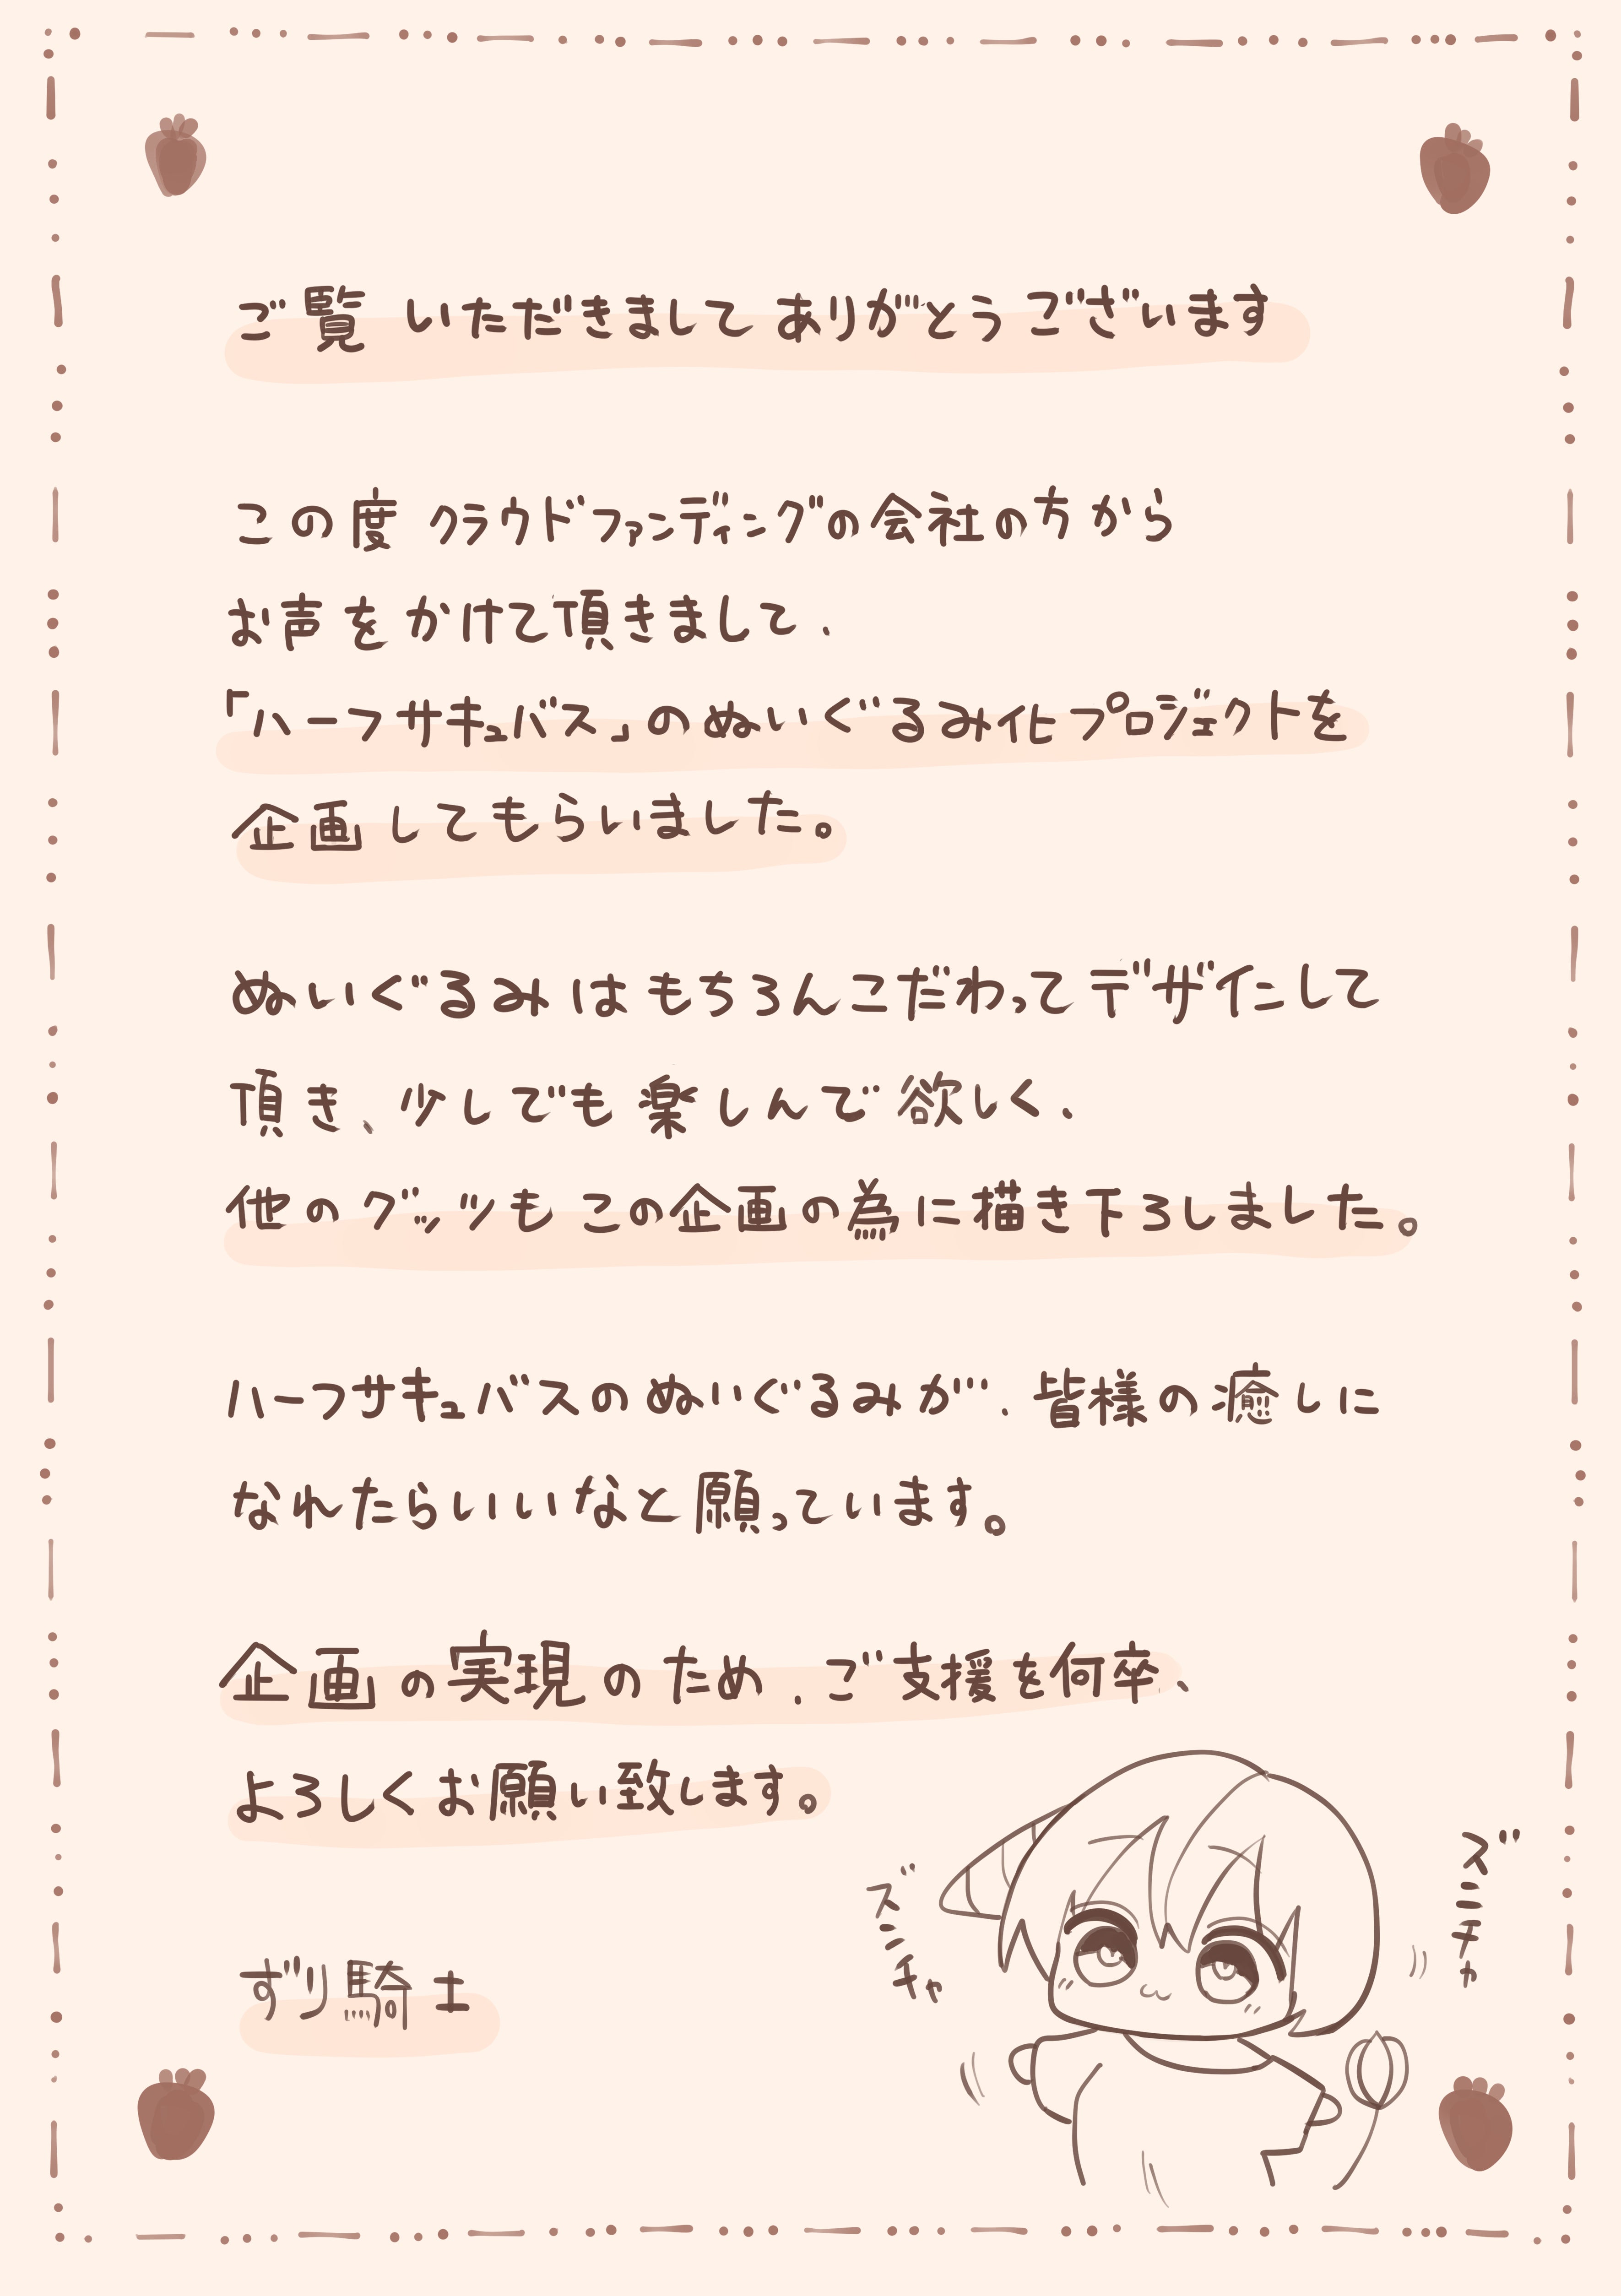 ご覧いただきまして ありがとうございます
この度 クラウドファンディングの会社の方から
お声をかけて頂きまして、
「ハーフサキュバス」のぬいぐるみ化プロジェクトを
企画してもらいました。
ぬいぐるみはもちろんこだわってデザインして
頂き、少しでも楽しんで欲しく、
他のグッツもこの企画の為に描き下ろしました。
ハーフサキュバスのぬいぐるみが、皆様の癒しに
なれたらいいなと願っています。
企画の実現のため、ご支援を何卒、
よろしくお願い致します。
ズンチャ
ズンチャ
ずり騎士